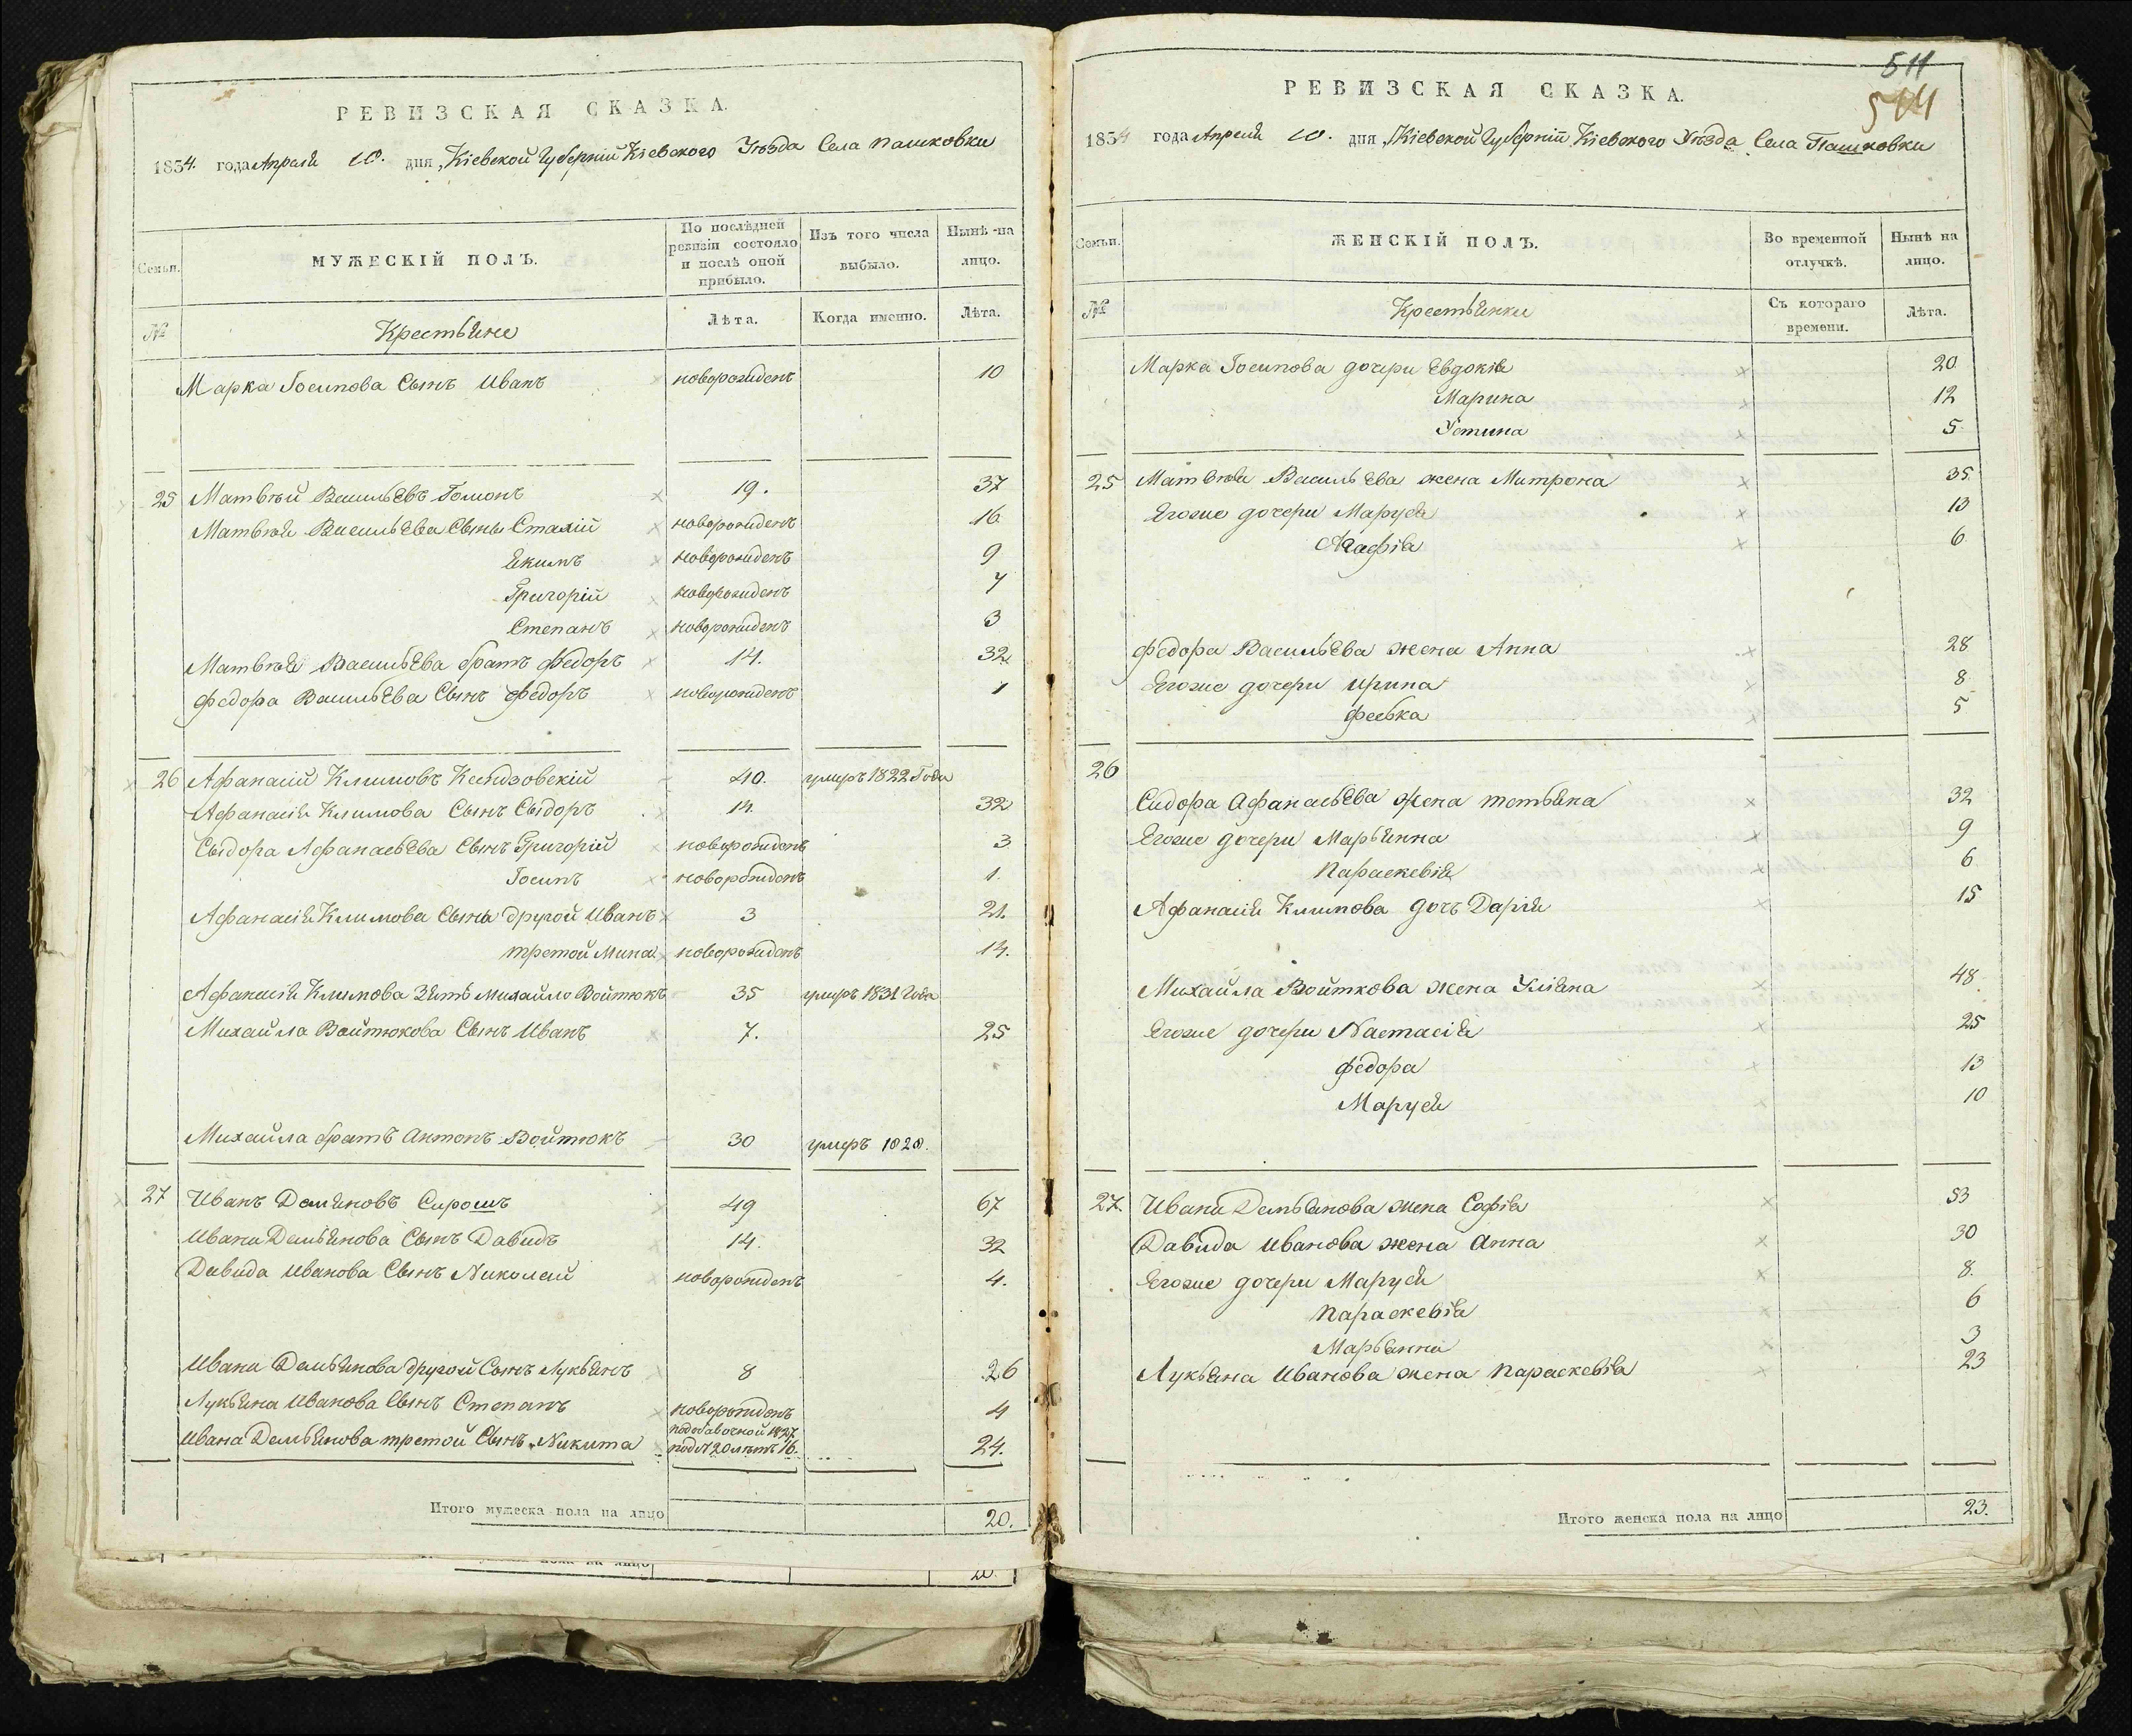 РЕВИЗСКАЯ СКАЗКА.
1834. года Апреля 10. дня, Кіевской Губерніи Кіевского Уѣзда Села Пашковки
Семьи.
МУЖЕСКІЙ ПОЛЪ.
По послѣдней ревизіи состояло и послѣ оной прибыло.
Изъ того числа выбыло.
Нынѣ на лицо.
№
Крестьяне
Лѣта.
Когда именно.
Лѣта.
Марка Іосипова Сынъ Иванъ новорожденъ 10
25 Матвѣй Васильевъ Гомонъ 19. 37
Матвѣя Васильева Сыны Стахій новорожденъ 16
Якимъ новорожденъ 9
Григорій новорожденъ 7
Степанъ новорожденъ 3
Матвѣя Васильева братъ Федоръ 14. 32.
Федора Васильева Сынъ Федоръ новорожденъ 1
26 Афанасій Климовъ 40. умеръ 1822 Года
Афанасія Климова Сынъ Сыдоръ 14. 32
Сыдора Афанасьева Сынъ Григорій новорожденъ 3
Іосипъ новорожденъ 1.
Афанасія Климова Сыны другой Иванъ 3 21.
третой Мина новорожденъ 14.
Афанасія Климова Зять Михайло Войтюкъ 35 умеръ 1831 Года
Михайла Войтюкова Сынъ Иванъ 7. 25
Михайла братъ Антонъ Войтюкъ 30 умеръ 1828.
27 Иванъ Демяновъ Сирошъ 49 67
Ивана Демьянова Сынъ Давидъ 14. 32
Давида Иванова Сынъ Николай новорожденъ 4.
Ивана Демьянова другой Сынъ Лукьянъ 8 26
Лукьяна Иванова Сынъ Степанъ новорожденъ 4
Ивана Демьянова третой Сынъ Никита подобавочной 1827 под № 20 лѣтъ 16. 24.
Итого мужеска пола на лицо 20.
511
РЕВИЗСКАЯ СКАЗКА.
1834 года Апреля 10. дня, Кіевской Губерніи Кіевского Уѣзда Села Пашковки
Семьи.
ЖЕНСКІЙ ПОЛЪ.
Во временной отлучкѣ.
Нынѣ на лицо.
№
Крестьянки
Съ котораго времени.
Лѣта.
Марка Іосипова дочери Евдокія 20
Марина 12
Устина 5
25 Матвѣя Васильева жена Митрона 35
Егоже дочери Маруся 13
Агафія 6
Федора Васильева жена Анна 28
Егоже дочери Ирина 8
Феська 5
26
Сидора Афанасьева жена Тетьяна 32
Егоже дочери Марьянна 9
Параскевія 6
Афанасія Климова дочъ Дарія 15
Михайла Войткова жена Уліяна 48
Егоже дочери Настасія 25
Федора 13
Маруся 10
27. Ивана Демьянова жена Софія 53
Давида Иванова жена Анна 30
Егоже дочери Маруся 8.
Параскевія 6
Марьянна 3
Лукьяна Иванова жена Параскевія 23
Итого женска пола на лицо 23.